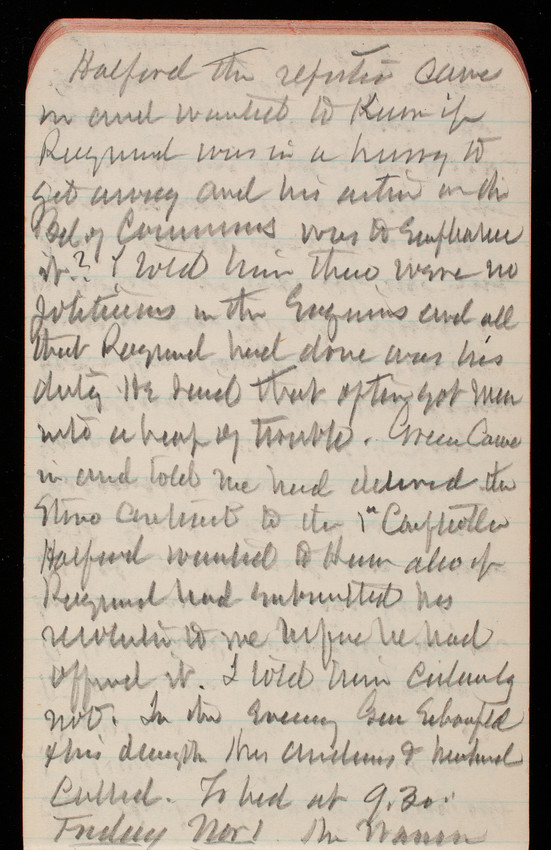 Halford the reporter came
in and wanted to know if
Raymond was in a hurry to
get away and his action on the
Bd of Commrs was to emphasize
it? I told him there were no
politicians in the Engineers and all
that Raymond had done was his
duty He said that often got men
into a heap of trouble. Green came
in and told me had delivered the
contract to the 1st Comptroller
Halford wanted to know also if
Raymond had submitted his
resolution to me before he had
offered it. I told him certainly
not. In the evening Gen
& his daughter Mrs & husband
called. To bed at 9.30.
Friday Nov 1 The